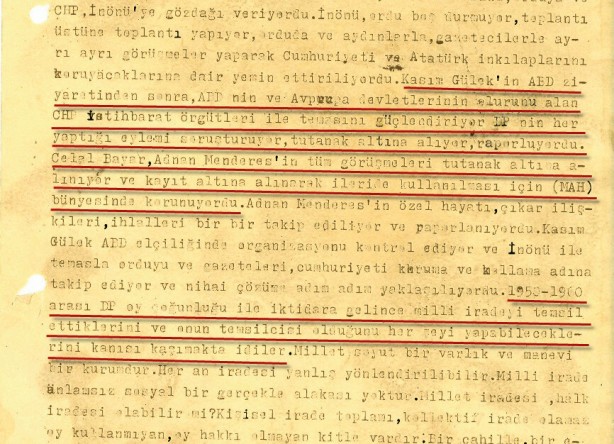 CHP,İnönü'ye gözdağı veriyordu.İnönü,ordu boş durmuyor,toplantı
üstüne toplantı yapıyor,orduda ve aydınlarla,gazetecilerle ay-
rı ayrı görüşmeler yaparak Cumhuriyeti ve Atatürk inkılaplarını
koruyöcaklarına dair yemin ettiriliyordu.Kasım Gülek'in ABD zi-
yaretinden sonra,ABD nin ve Avprupa devletlerinin olurunu alan
CHP istihbarat örgütleri ile temasını güçlendiriyor DP nin her
yaptığı eylemi soruşturuyor,tutanak altına alıyor,raporluyordu.
Celal Bayar,Adnan Menderes'in tüm görüşmeleri tutanak altına a-
lınıyor ve kayıt altına alınarak ileride kullanılması için (MAH)
bünyesinde korunuyordu.Adnan Menderes'in özel hayatı,çıkar iliç-
kileri,ihlalleri bir bir takip ediliyor ve paporlanıyordu.Kasım
Gülek ABD elçiliğinde organizasyonu kontrol ediyor ve İnönü ile
temasla orduyu ve gazeteleri,cumhuriyeti kuruma ve kollama adına
takip ediyor ve nihai çözüme adım adım yaklaşılıyordu.1950-1960
arası DP oy çoğunluğu ile iktidara gelince milli iradeyi temsil
ettiklerini ve onun temsilcisi olduğunu her şeyi yapabilecekle-
rini kanısı kaçımakta idiler.Millet soyut bir varlık ve manevi
bir kurumdur.Her an iradesi yanlış yönlendirilibilir.Milli irade
anlamsız sosyal bir gerçekle alakası yoktur.Millet iradesi ,halk
iradesi olabilir mi?Kişisel irade toplamı,kollektif irade olamaz
oy kullanmıyan,oy hakkı olmayan kitle vardır.Bir cahille,bir